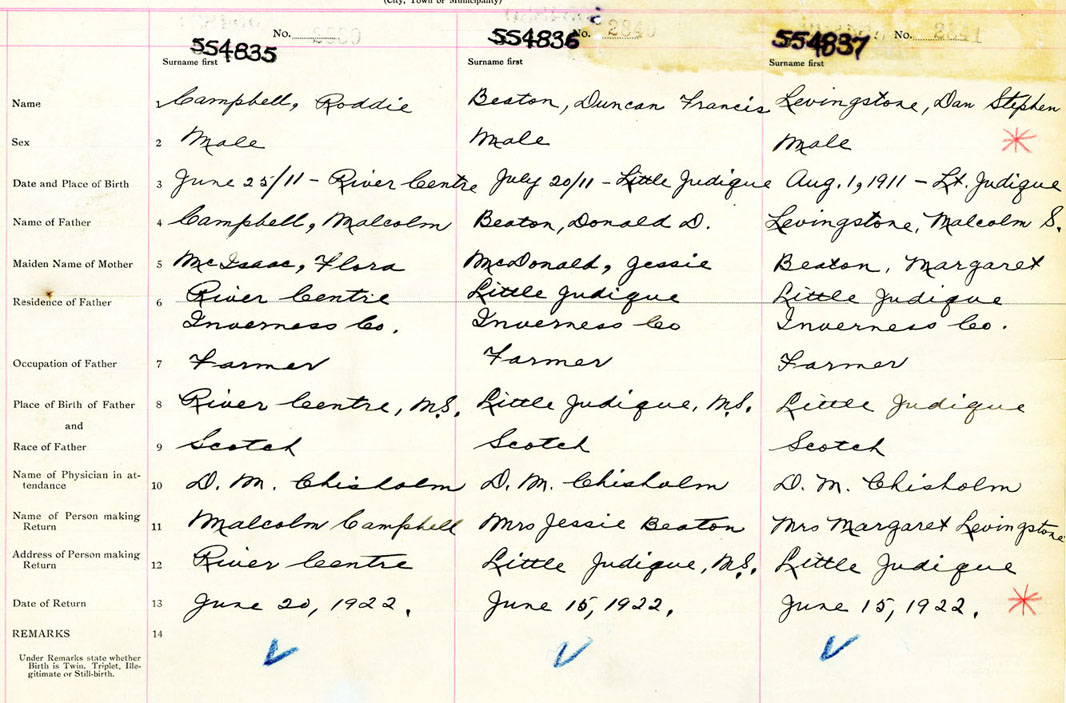 (City, Town or Municipality)
No. 2840 No. 2841 No.
554835 554836 554837
Surname first Surname first Surname first
Name 1 Campbell, Roddie Beaton, Duncan Francis Levingstone, Dan Stephen
Sex 2 Male Male Male
Date and Place of Birth 3 June 25/11 - River Centre July 20/11 - Little Judique Aug. 1, 1911 - Lt. Judique
Name of Father 4 Campbell, Malcolm Beaton, Donald D. Levingstone, Malcolm S.
Maiden Name of Mother 5 McIsaac, Flora McDonald, Jessie Beaton, Margaret
Residence of Father 6 River Centre Little Judique Little Judique
Inverness Co. Inverness Co Inverness Co.
Occupation of Father 7 Farmer Farmer Farmer
Place of Birth of Father 8 River Centre, N.S. Little Judique, N.S. Little Judique
and
Race of Father 9 Scotch Scotch Scotch
Name of Physician in at-
tendance 10 D. M. Chisholm D. M. Chisholm D. M. Chisholm
Name of Person making
Return 11 Malcolm Campbell Mrs Jessie Beaton Mrs Margaret Levingstone
Address of Person making
Return 12 River Centre Little Judique, N.S. Little Judique
Date of Return 13 June 20, 1922. June 15, 1922. June 15, 1922.
REMARKS 14
Under Remarks state whether
Birth is Twin, Triplet, Ille-
gitimate or Still-birth.